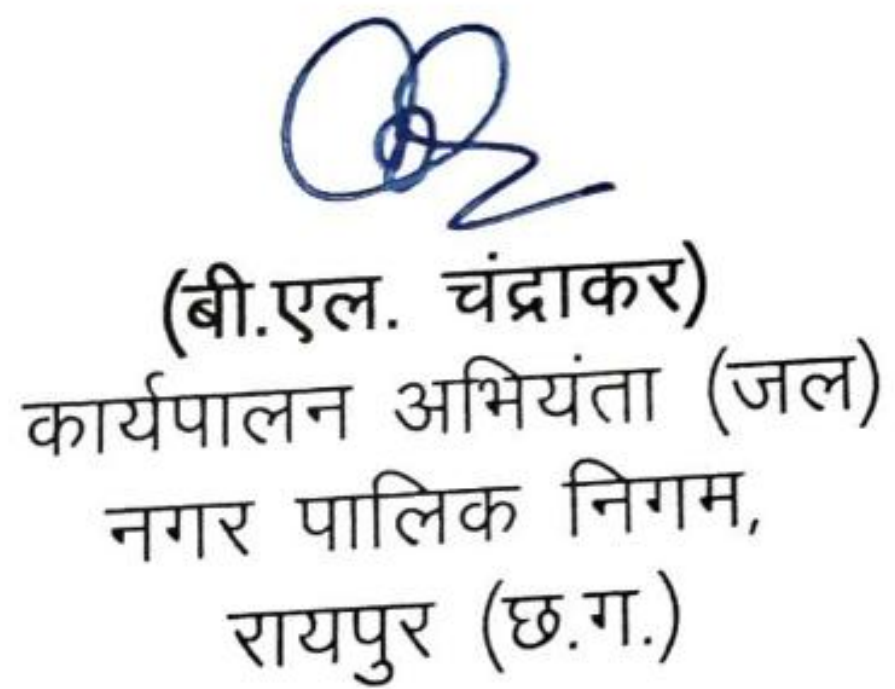 (बी.एल. चंद्राकर)
कार्यपालन अभियंता (जल)
नगर पालिक निगम,
रायपुर (छ.ग.)